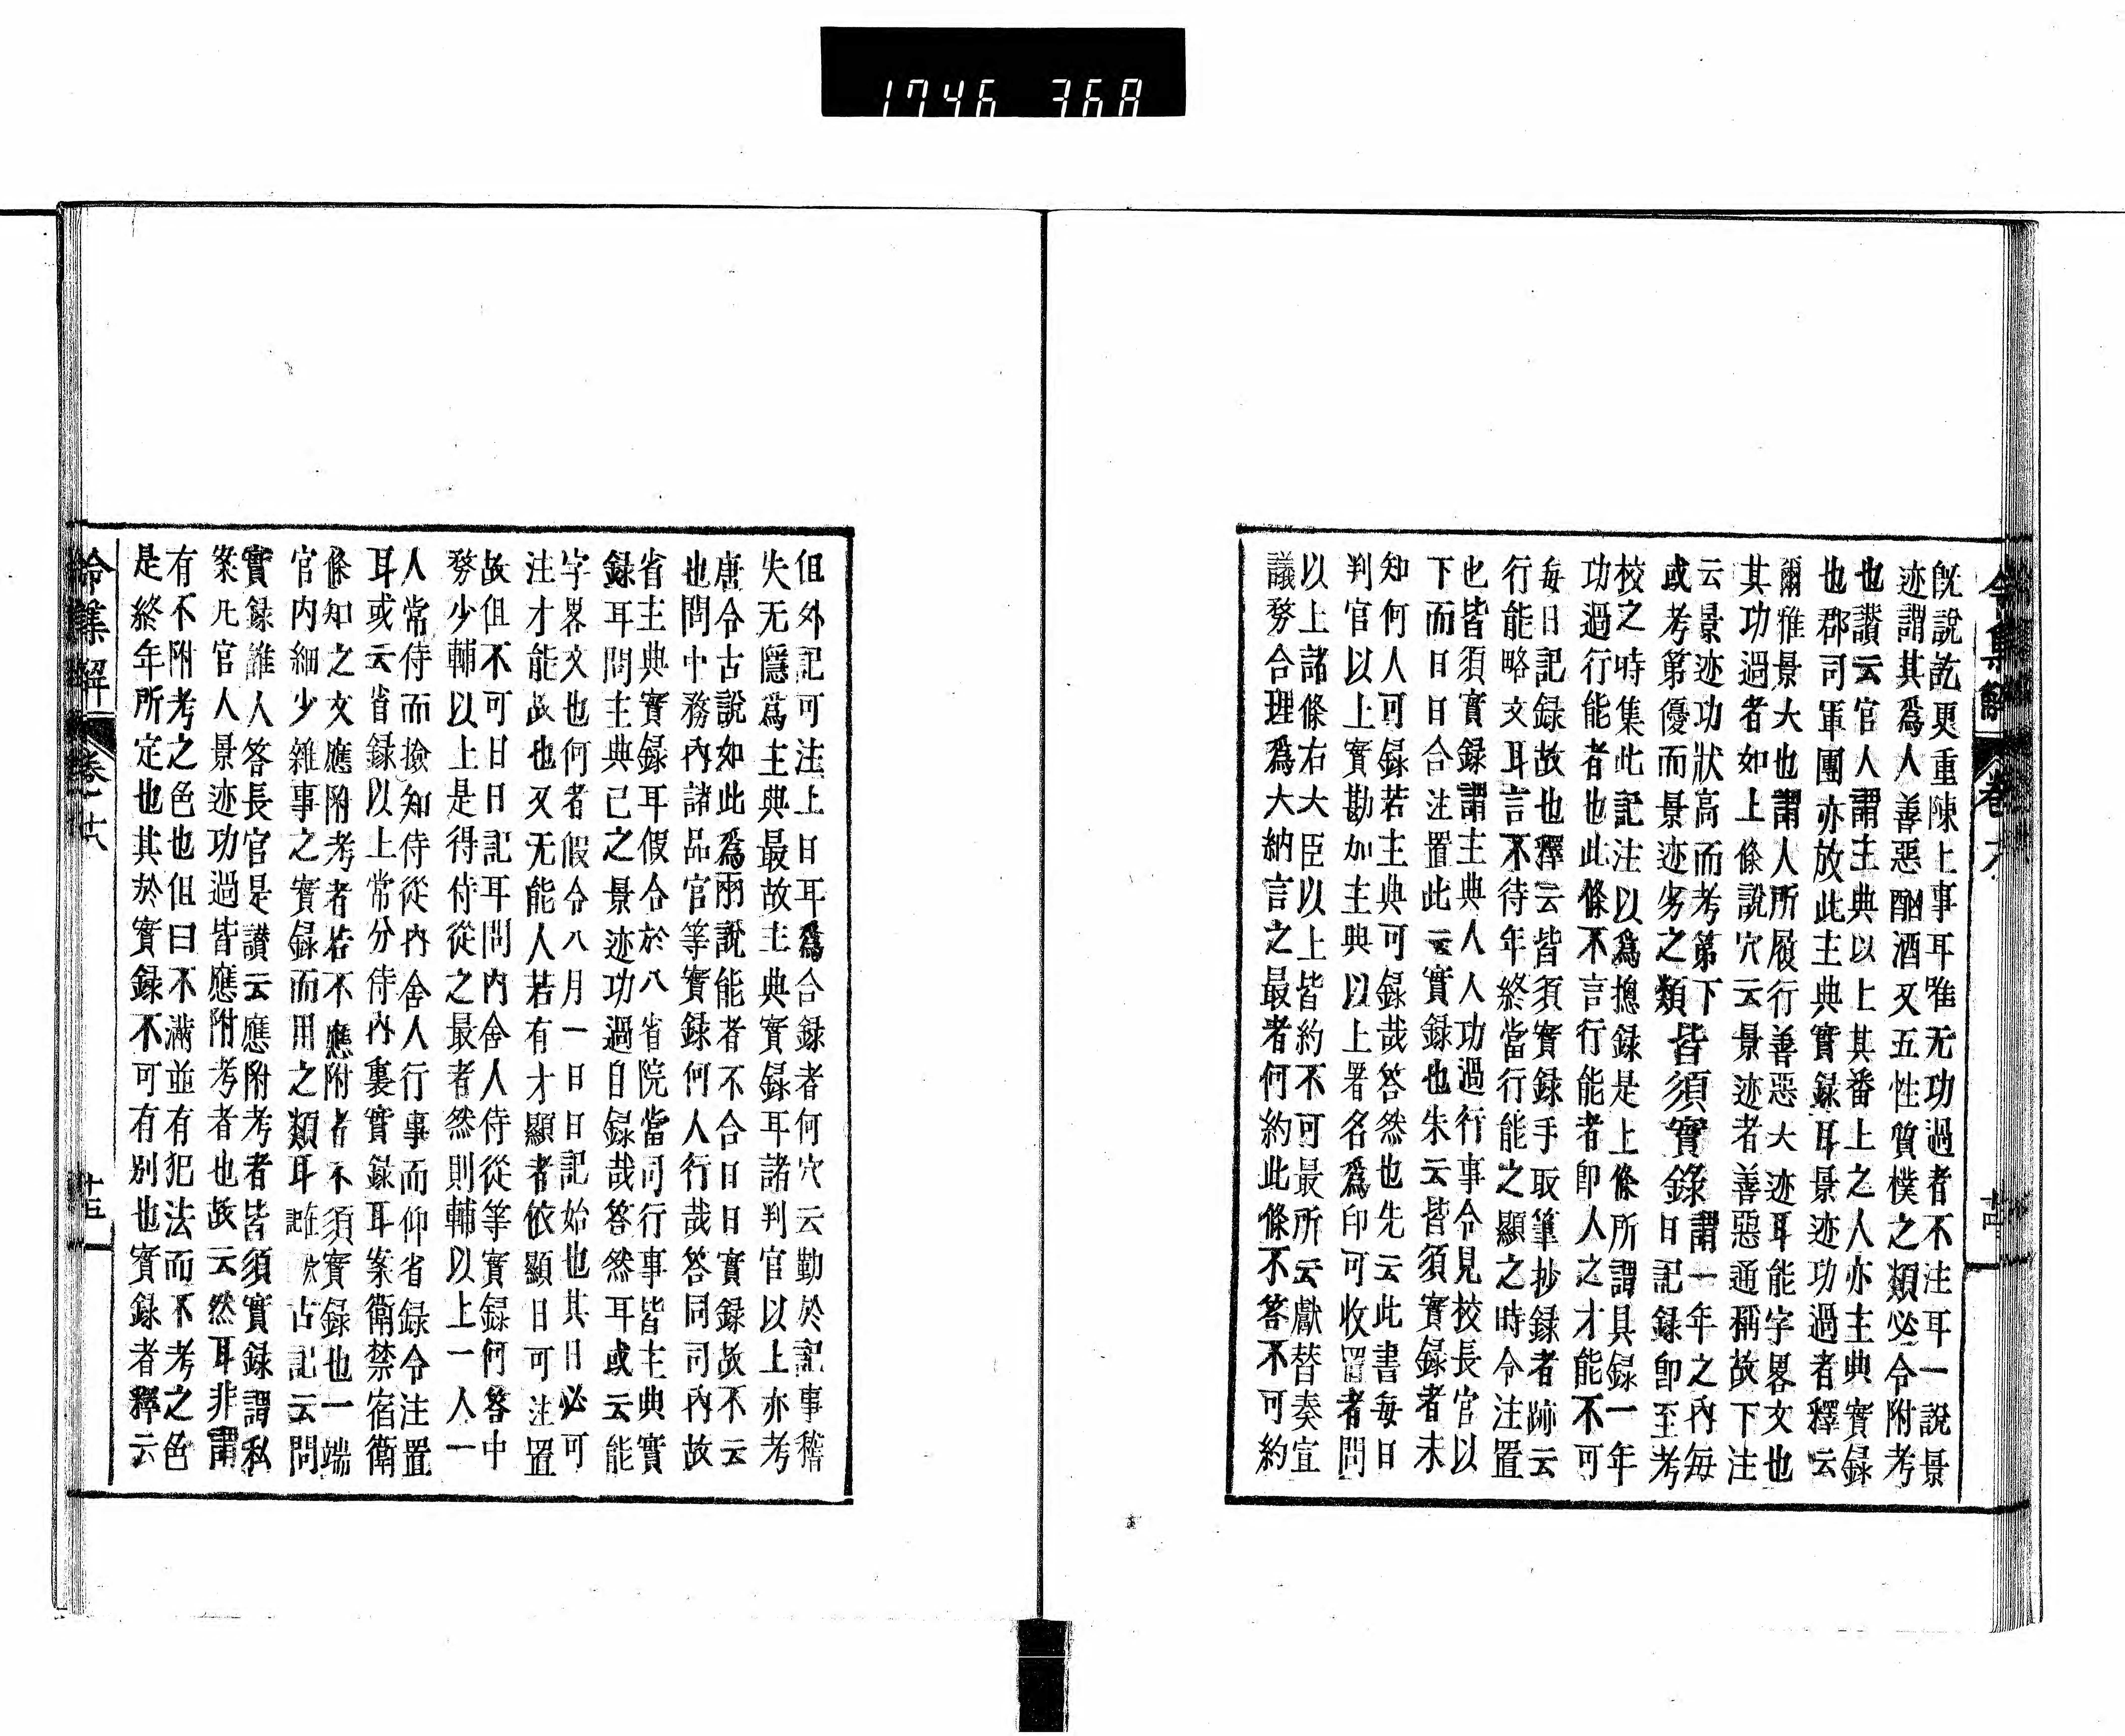 1746 368
令集解 卷六
既說訖更重陳上事耳唯无功過者不注耳一說景
迹謂其爲人善惡酗酒又五性質樸之類必令附考
也讚云官人謂主典以上其番上之人亦主典實録
也郡司軍團亦放此主典實録耳景迹功過者釋云
爾雅景大也謂人所履行善惡大迹耳能字畧文也
其功過者如上條說穴云景迹者善惡通稱故下注
云景迹功狀高而考第下
或考第優而景迹劣之類
皆須實錄
謂一年之內每
日記録即至考
校之時集此記注以爲揔録是上條所謂具録一年
功過行能者也此條不言行能者即人之才能不可
每日記録故也釋云皆須實録手取筆抄録者跡云
行能略文耳言不待年終當行能之顯之時令注置
也皆須實録謂主典人人功過行事令見校長官以
下而日日合注置此云實録也朱云皆須實録者未
知何人可録若主典可録哉答然也先云此書每日
判官以上實勘加主典以上署名爲印可收置者問
以上諸條右大臣以上皆約不可最所云獻替奏宣
議務合理爲大納言之最者何約此條不答不可約
但外記可注上日耳爲合録者何穴云勤於記事稽
失无隱爲主典最故主典實録耳諸判官以上亦考
唐令古說如此爲兩說能者不合日日實録故不云
也問中務內諸品官等實録何人行哉答同司內故
省主典實録耳假合於八省院當司行事皆主典實
録耳問主典己之景迹功過自録哉答然耳或云能
字畧文也何者假令八月一日日記始也其日必可
注才能故也又无能人若有才顯者依顯日可注置
故但不可日日記耳問內舍人侍從等實録何答中
務少輔以上是得侍從之最者然則輔以上一人一
人常侍而撿知侍從內舍人行事而仰省録令注置
耳或云省録以上常分侍內裏實録耳案衛禁宿衛
條知之文應附考者若不應附者不須實録也一端
官內細少雜事之實録而用之類耳 古記云問
實録誰人答長官是讃云應附考者皆須實録謂私
案凡官人景迹功過皆應附考者也故云然耳非謂
有不附考之色也但曰不滿並有犯法而不考之色
是終年所定也其於實録不可有別也實録者釋云
令集解 卷十六